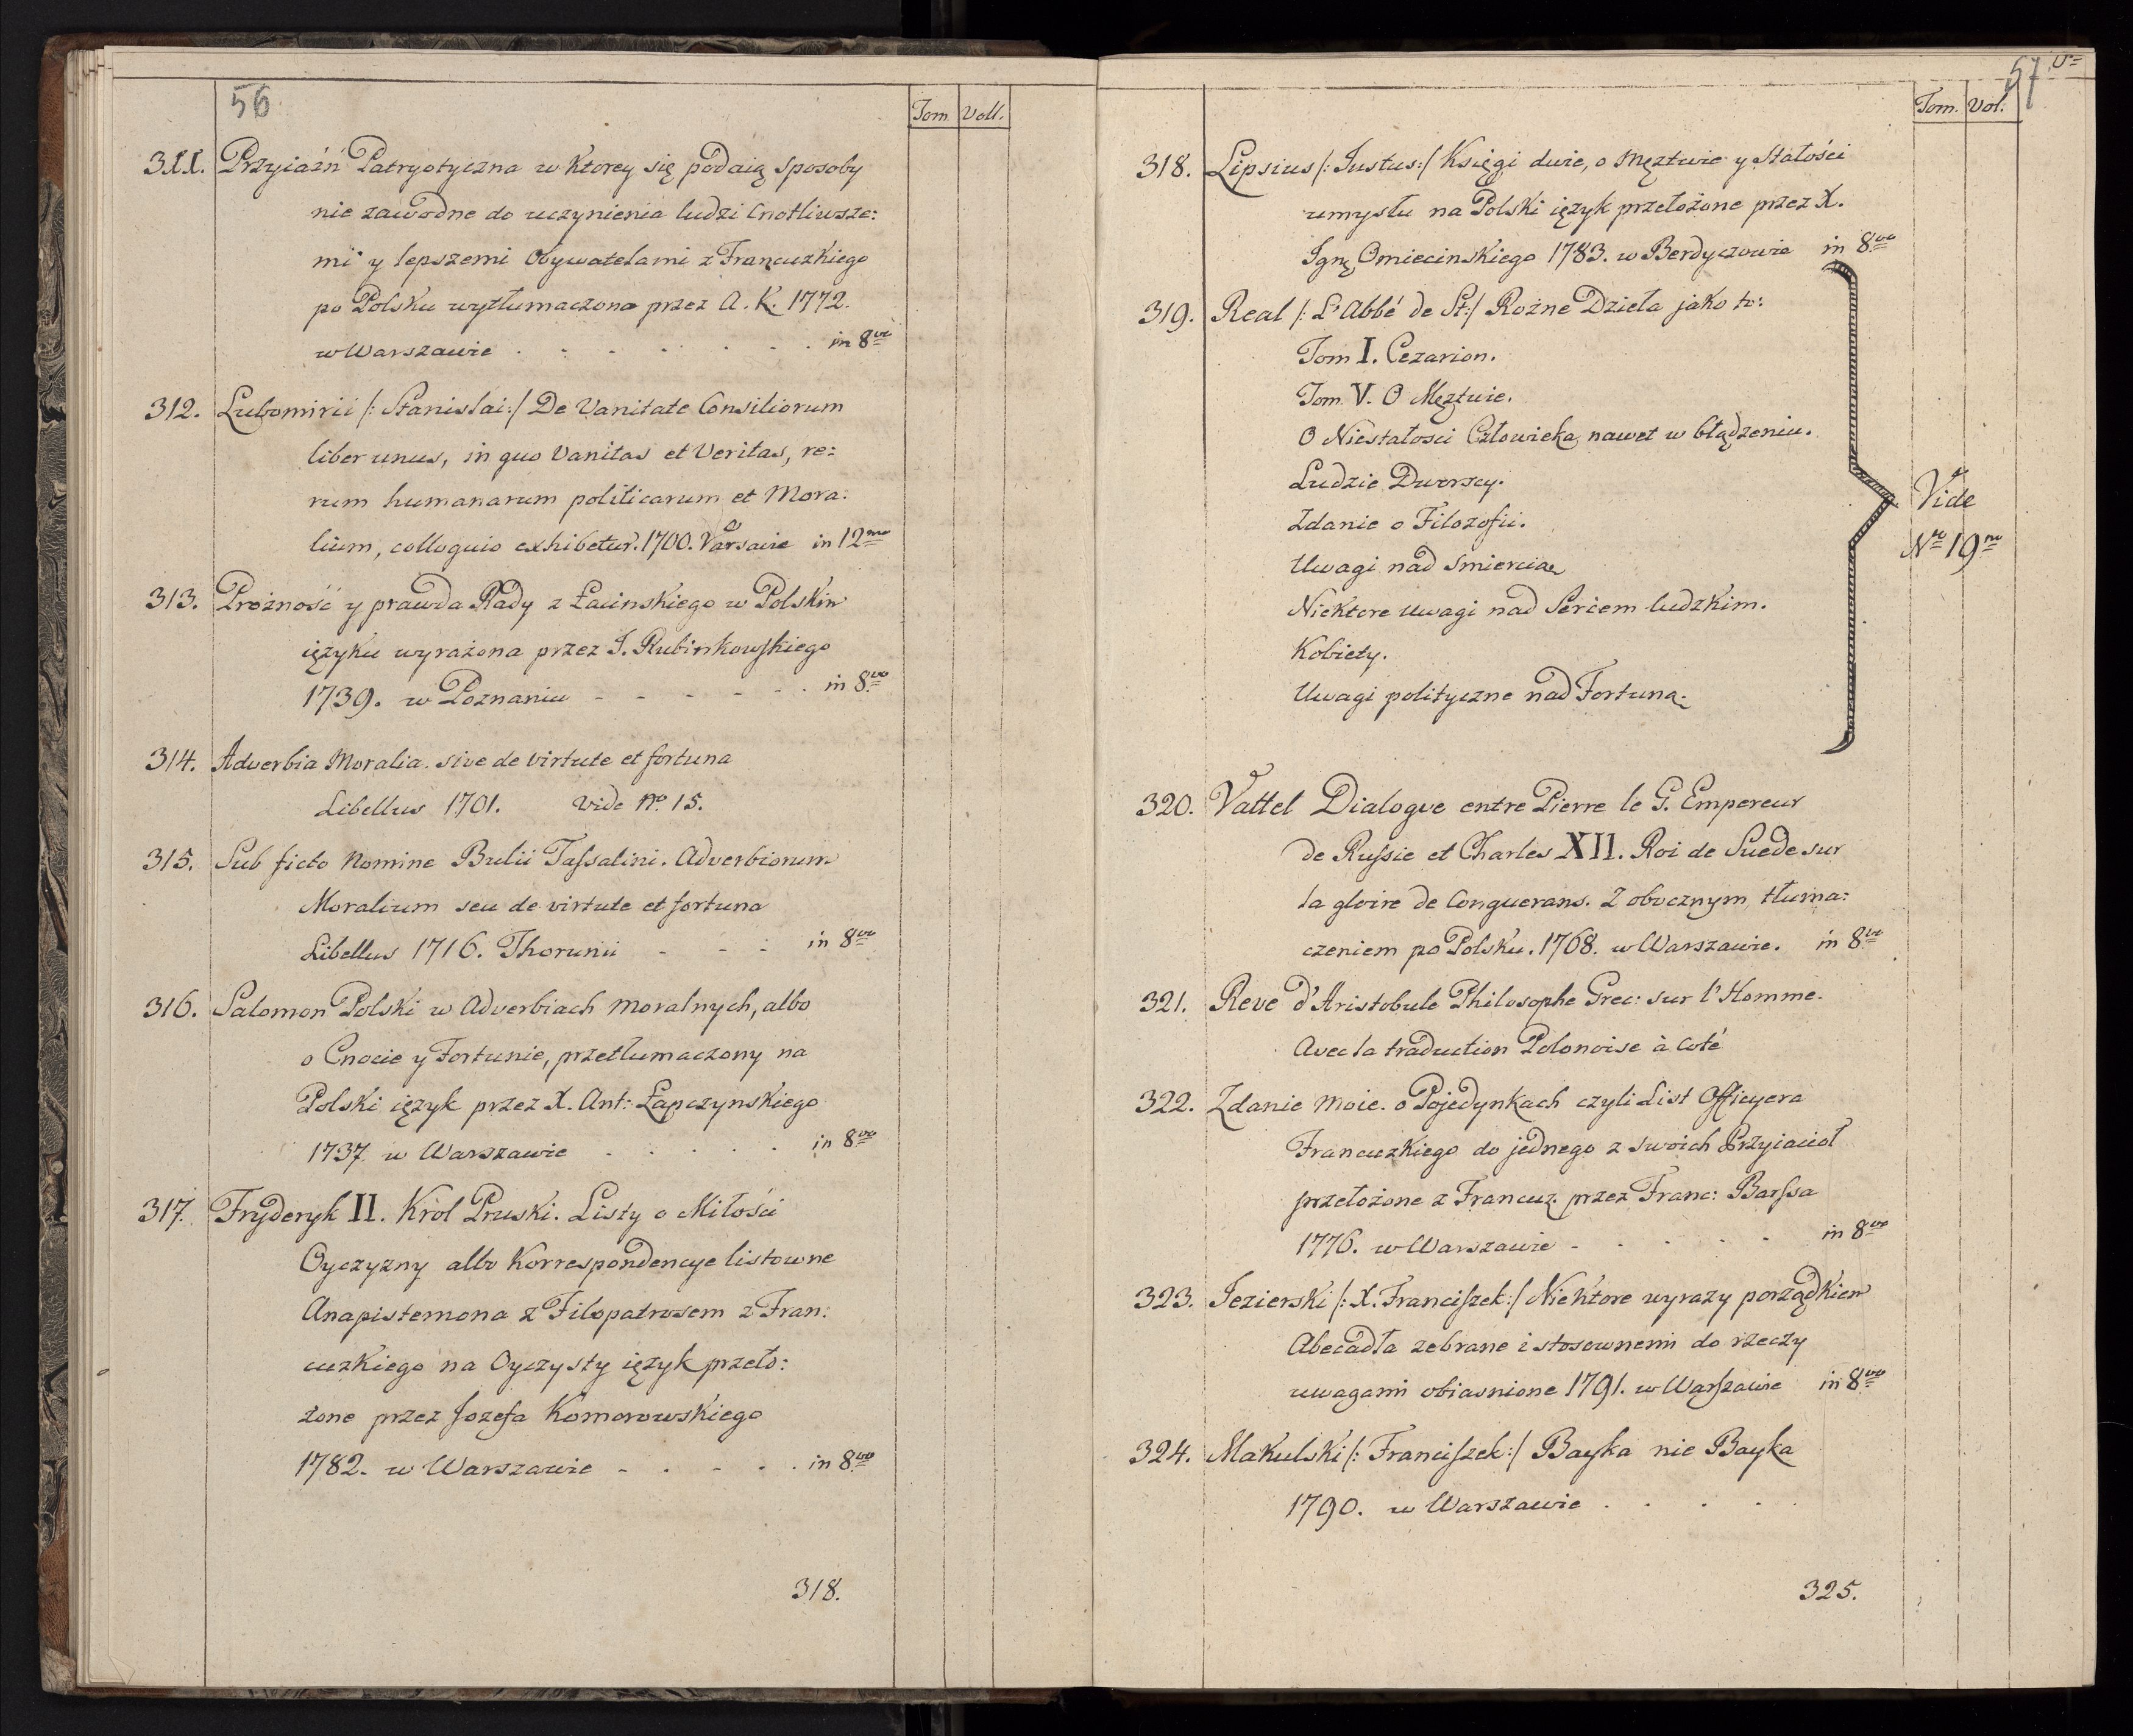 56
Tom Voll.
311. Przyiaźń Patryotyczna w Ktorey się podaią Sposoby
nie zawodne do uczynienia ludzi Cnotliwsze:
mi y lepszemi Obywatelami z Francuzkiego
po Polsku wytłumaczona przez A. K. 1772.
w Warszawie . . . . . . . in 8vo
312. Lubomirii /: Stanislai:/ De Vanitate Consiliorum
liber unus, in quo Vanitas et Veritas, re:
rum humanarum politicarum et Mora:
lium, colloquio exhibetur. 1700. Varsavie in 12mo
313. Prożność y prawda Rady z Łacinskiego w Polskim
ięzyku wyrażona przez J. Rubinkowskiego
1739. w Poznaniu - - - - - . in 8vo
314. Adverbia Moralia. sive de virtute et fortuna
Libellus 1701. vide No 15.
315. Sub ficto Nomine Brulii Tassalini. Adverbiorum
Moralium seu de virtute et fortuna
Libellus 1716. Thorunii - - - in 8vo
316. Salomon Polski w Adverbiach moralnych, albo
o Cnocie y Fortunie, przetłumaczony na
Polski ięzyk przez X. Ant: Łapczynskiego
1737 w Warszawie . . . . . in 8vo
317. Fryderyk II. Krol Pruski. Listy o Miłości
Oyczyzny albo Korrespondencye listowne
Anapistemona z Filopatrosem z Fran:
cuzkiego na Oyczysty ięzyk przeło:
żone przez Jozefa Komorowskiego
1782. w Warszawie - . - . . in 8vo
318.
57
Tom. Vol.
318. Lipsius /: Justus:/ Księgi dwie, o Męztwie y Stałości
umysłu na Polski ięzyk przełożone przez X.
Ign. Omiecinskiego 1783. w Berdyczowie in 8vo
319. Real /: L'Abbé de St:/ Rożne Dzieła jako to:
Tom I. Cezarion.
Tom V. O Męztwie.
O Niestałosci Człowieka nawet w błądzeniu.
Ludzie Dworscy.
Zdanie o Filozofii.
Uwagi nad Smiercią
Niektore Uwagi nad Sercem ludzkim.
Kobiety.
Uwagi polityczne nad Fortuną.
Vide
No 19no
320. Vattel Dialogue entre Pierre le G. Empereur
de Russie et Charles XII. Roi de Suede sur
la gloire de Conquerans. Z obocznym tłuma:
czeniem po Polsku. 1768. w Warszawie. in 8vo
321. Reve d'Aristobule Philosophe Grec: sur l'Homme.
Avec la traduction Polonoise à Coté
322. Zdanie moie. o Pojedynkach czyli List Officyera
Francuzkiego do jednego z swoich Przyiacioł
przełożone z Francuz. przez Franc: Barssa
1776. w Warszawie - . . . . in 8vo
323. Jezierski /: X. Franciszek:/ Niektore wyrazy porządkiem
Abecadła zebrane i stosownemi do rzeczy
uwagami obiasnione 1791. w Warszawie in 8vo
324. Makulski /: Franciszek:/ Bayka nie Bayka
1790. w Warszawie . . . . .
325.